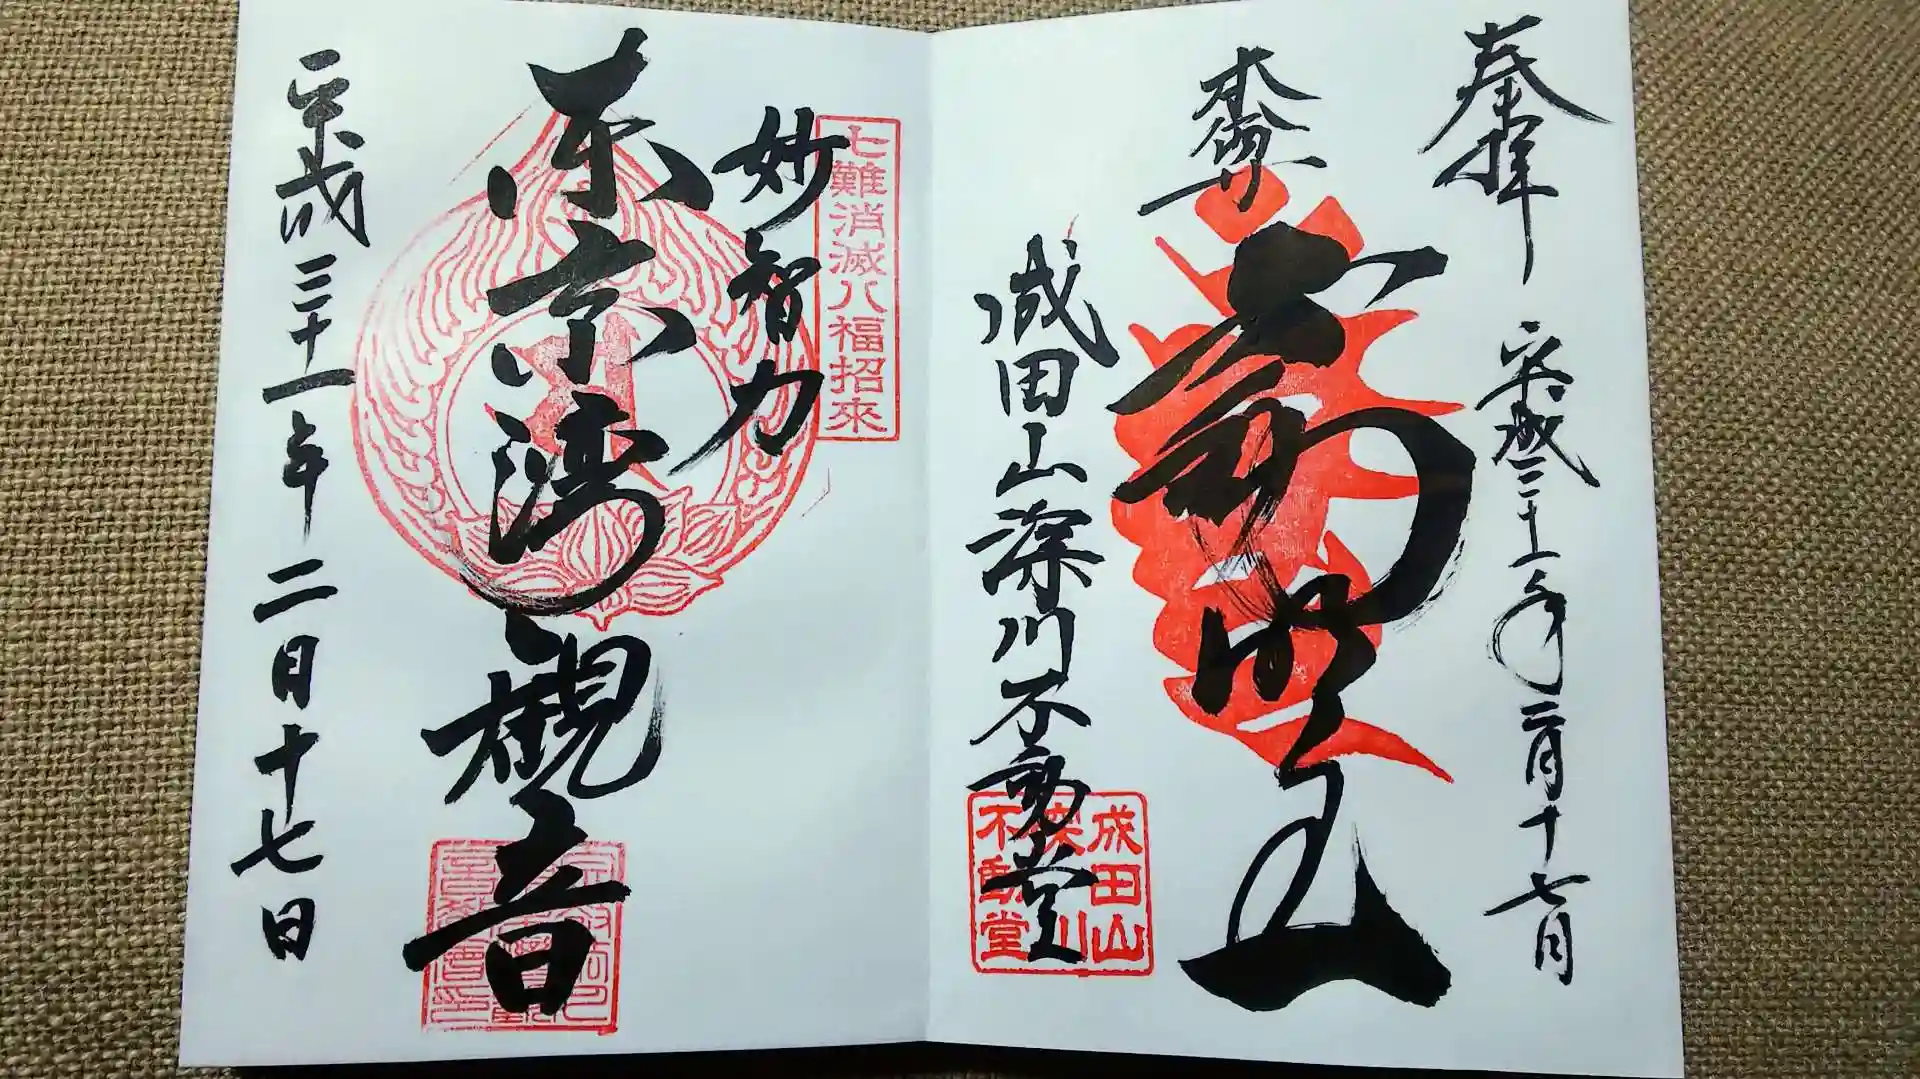 奉拝
平成三十一年二月十七日
本尊
不動明王
成田山深川不動堂
成田山
深川
不動堂
七難消滅八福招來
妙智力
東京湾観音
平成三十一年二月十七日